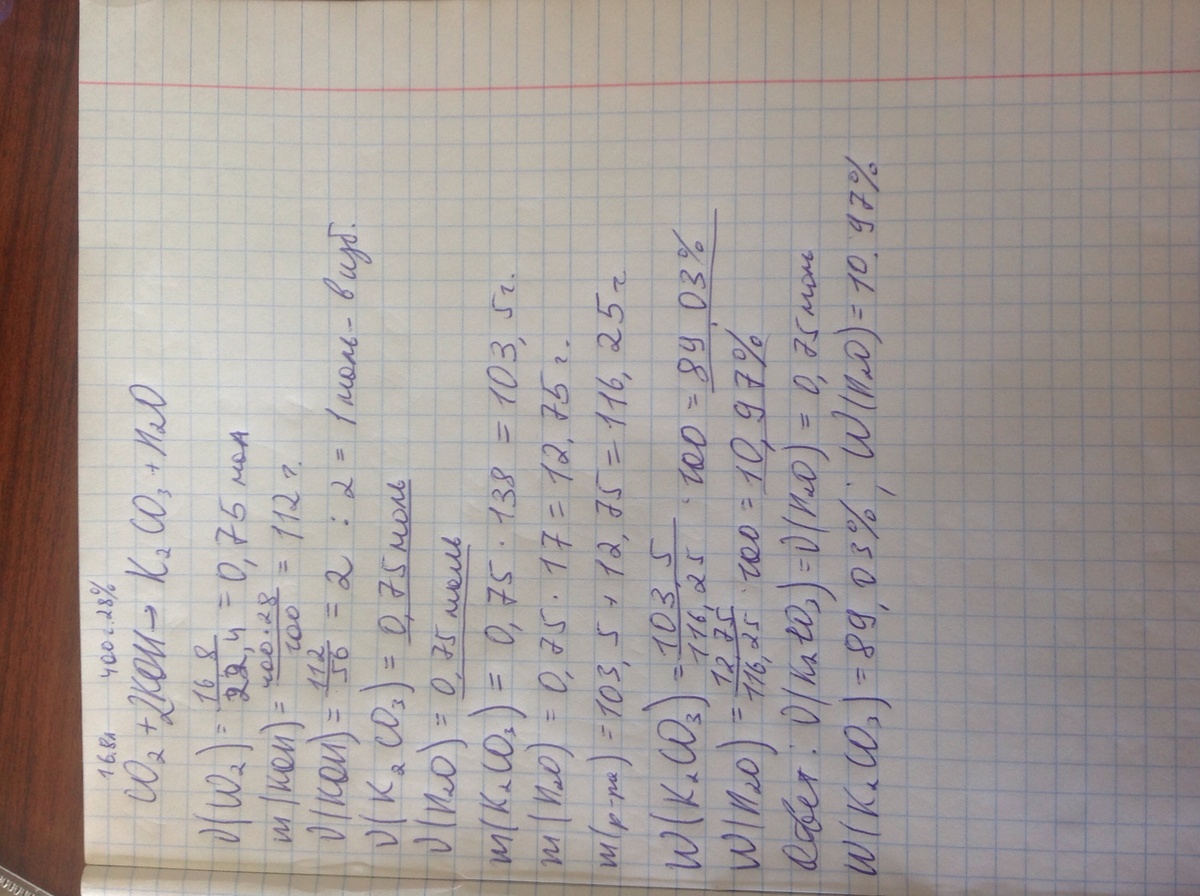 16.8л 400 г. 28%
CO₂ + 2KOH → K₂CO₃ + H₂O
ν(CO₂) = 16,8/22,4 = 0,75 мол
m(KOH) = 400·28/100 = 112 г.
ν(KOH) = 112/56 = 2 : 2 = 1 моль - в изб.
ν(K₂CO₃) = 0,75 моль
ν(H₂O) = 0,75 моль
m(K₂CO₃) = 0,75 · 138 = 103,5 г.
m(H₂O) = 0,75 · 17 = 12,75 г.
m(р-ра) = 103,5 + 12,75 = 116,25 г
W(K₂CO₃) = 103,5/116,25 · 100 = 89,03%
W(H₂O) = 12,75/116,25 · 100 = 10,97%
Ответ: ν(K₂CO₃) = ν(H₂O) = 0,75 моль
W(K₂CO₃) = 89,03%; W(H₂O) = 10.97%